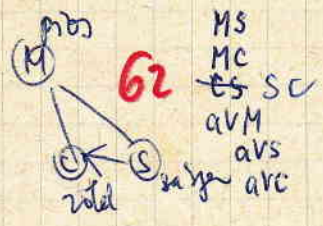 piros
M
62
MS
MC
CS SC
aVM
aVS
aVC
C
S
zöld
sárga